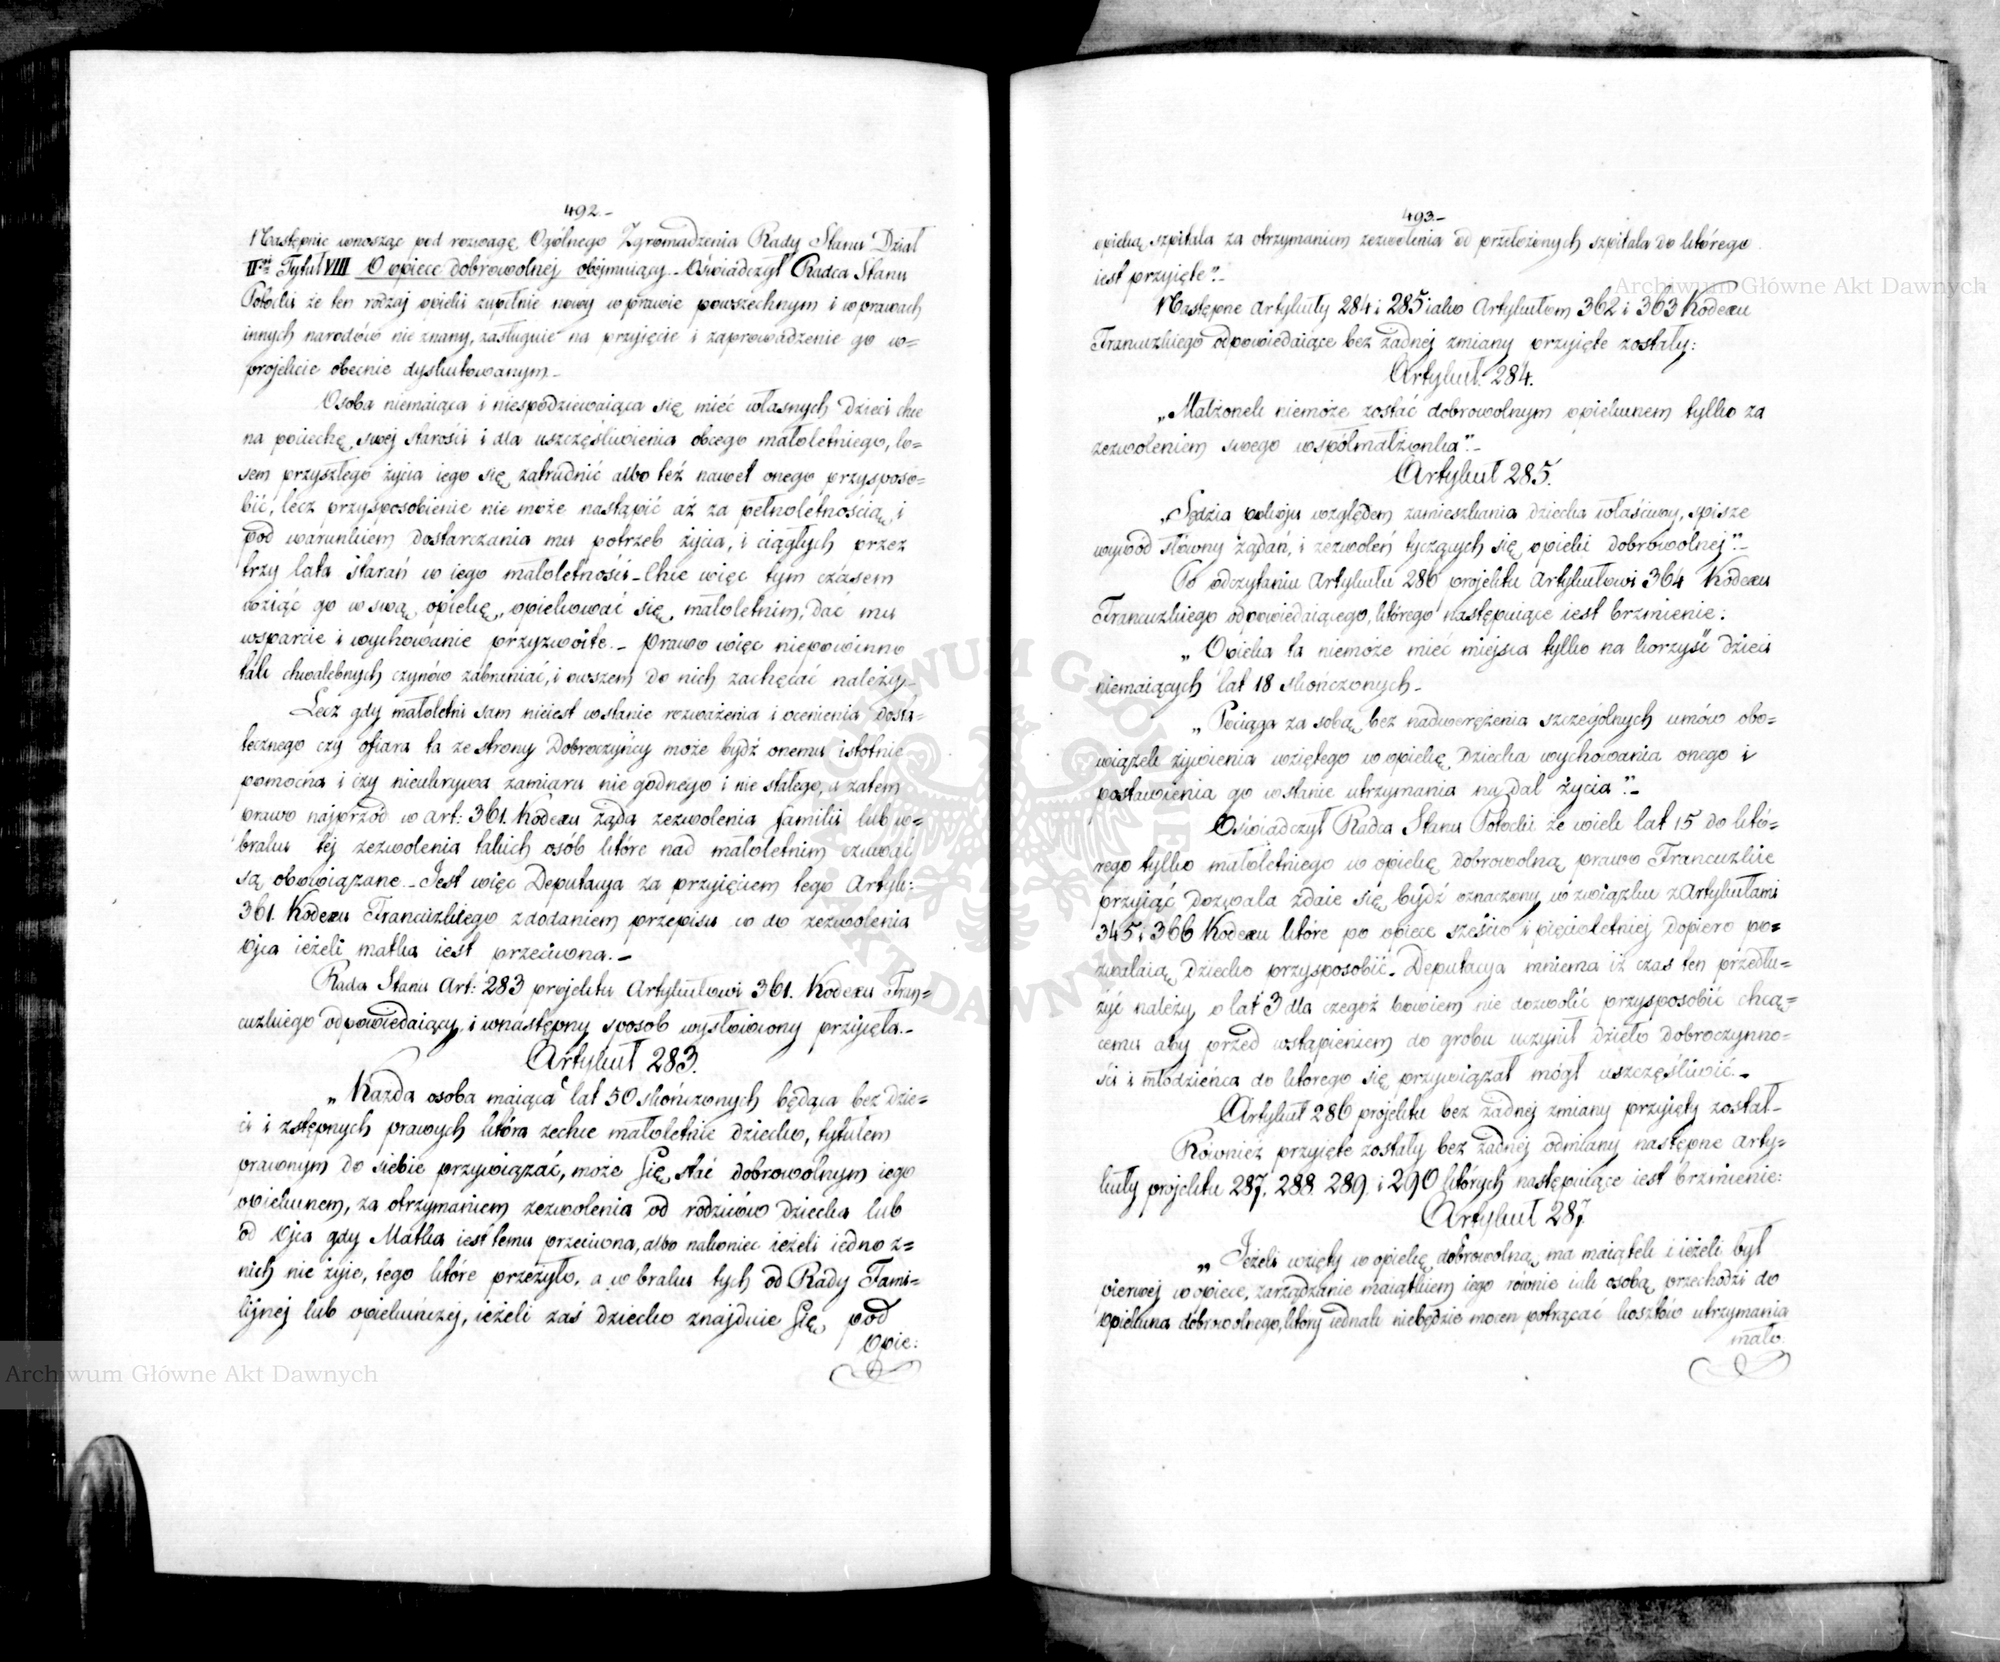 492.-
Następnie wnosząc pod rozwagę Ogólnego Zgromadzenia Rady Stanu Dział
IIgi Tytuł VIII O opiece dobrowolnej obejmuiący - Oświadczył Radca Stanu
Potocki że ten rodzaj opieki zupełnie nowy w prawie powszechnym i w prawach
innych narodów nie znany, zasługuie na przyjęcie i zaprowadzenie go w=
projekcie obecnie dyskutowanym -
Osoba niemaiąca i niespodziewaiąca się mieć własnych dzieci chce
na pociechę swej starości i dla uszczęśliwienia obcego małoletniego, lo=
sem przyszłego życia iego się zatrudnić albo też nawet onego przysposo=
bić, lecz przysposobienie nie może nastąpić aż za pełnoletnością i
pod warunkiem dostarczania mu potrzeb życia, i ciągłych przez
trzy lata starań w iego małoletności - Chce więc tym czasem
wziąć go w swą opiekę, opiekować się małoletnim, dać mu
wsparcie i wychowanie przyzwoite. - Prawo więc niepowinno
tak chwalebnych czynów zabraniać, i owszem do nich zachęcać należy -
Lecz gdy małoletni sam nieiest wstanie rozważenia i ocenienia dosta=
tecznego czy ofiara ta ze strony Dobroczyńcy może bydź onemu istotnie
pomocna i czy nieukrywa zamiaru nie godnego i nie stałego, a zatem
prawo najprzód w art: 361. Kodexu żąda zezwolenia familii lub w=
braku tej zezwolenia takich osób które nad małoletnim czuwać
są obowiązane. - Jest więc Deputacya za przyięciem tego Artyk:
361. Kodexu Francuzkiego z dodaniem przepisu w do zezwolenia
Ojca ieżeli matka iest przeciwna. -
Rada Stanu Art: 283 projektu Artykułowi 361. Kodexu Fran=
cuzkiego odpowiedaiący i wnastępny sposób wysłowiony przyięła. -
Artykuł 283.
„Każda osoba maiąca lat 50 skończonych będąca bez dzie=
ci i zstępnych prawych która zechce małoletnie dziecko, tytułem
prawnym do siebie przywiązać, może się stać dobrowolnym iego
opiekunem, za otrzymaniem zezwolenia od rodziców dziecka lub
od Ojca gdy Matka iest temu przeciwna, albo nakoniec ieżeli iedno z=
nich nie żyie, tego które przeżyło, a w braku tych od Rady Fami=
lijnej lub opiekuńczej, ieżeli zaś dziecko znajduie się pod
Opie:
493.-
opieką szpitala za otrzymaniem zezwolenia od przełożonych szpitala do którego
iest przyięte". -
Następne Artykuły 284 i 285 iako Artykułom 362 i 363 Kodexu
Francuzkiego odpowiedaiące bez żadnej zmiany przyięte zostały:
Artykuł. 284.
„Małżonek niemoże zostać dobrowolnym opiekunem tylko za
zezwoleniem swego współmałżonka". -
Artykuł 285.
„Sędzia pokoju względem zamieszkania dziecka właściwy, spisze
wywód słowny żądań, i zezwoleń tyczących się opieki dobrowolnej". -
Po odczytaniu Artykułu 286 projektu Artykułowi 364 Kodexu
Francuzkiego odpowiedaiącego, którego następuiące iest brzmienie:
„Opieka ta niemoże mieć miejsca tylko na korzyść dzieci
niemaiących lat 18 skończonych -
„Pociąga za sobą bez nadwerężenia szczególnych umów obo=
wiązek żywienia wziętego w opiekę dziecka wychowania onego i
postawienia go wstanie utrzymania nadal życia". -
Oświadczył Radca Stanu Potocki że wiek lat 15 do któ=
rego tylko małoletniego w opiekę dobrowolną prawo Francuzkie
przyiąć dozwala zdaie się bydź oznaczony w związku z Artykułami
345 i 366 Kodexu które po opiece sześcio i pięcioletniej dopiero po=
zwalaią dziecko przysposobić. Deputacya mniema iż czas ten przedłu=
żyć należy o lat 3 dla czegoż bowiem nie dozwolić przysposobić chcą=
cemu aby przed wstąpieniem do grobu uczynił dzieło dobroczynno=
ści i młodzieńca do którego się przywiązał mógł uszczęśliwić. -
Artykuł 286 projektu bez żadnej zmiany przyięty został -
Również przyięte zostały bez żadnej odmiany następne Arty=
kuły projektu 287. 288. 289. i 290 których następuiące iest brzmienie:
Artykuł 287.
„Jeżeli wzięty w opiekę dobrowolną ma maiątek i ieżeli był
pierwej w opiece, zarządzanie maiątkiem iego równie iak osobą przechodzi do
Opiekuna dobrowolnego, który iednak niebędzie mocen potrącać kosztów utrzymania
mało.
Archiwum Główne Akt Dawnych
Archiwum Główne Akt Dawnych
ARCHIWUM GŁÓWNE AKT DAWNYCH